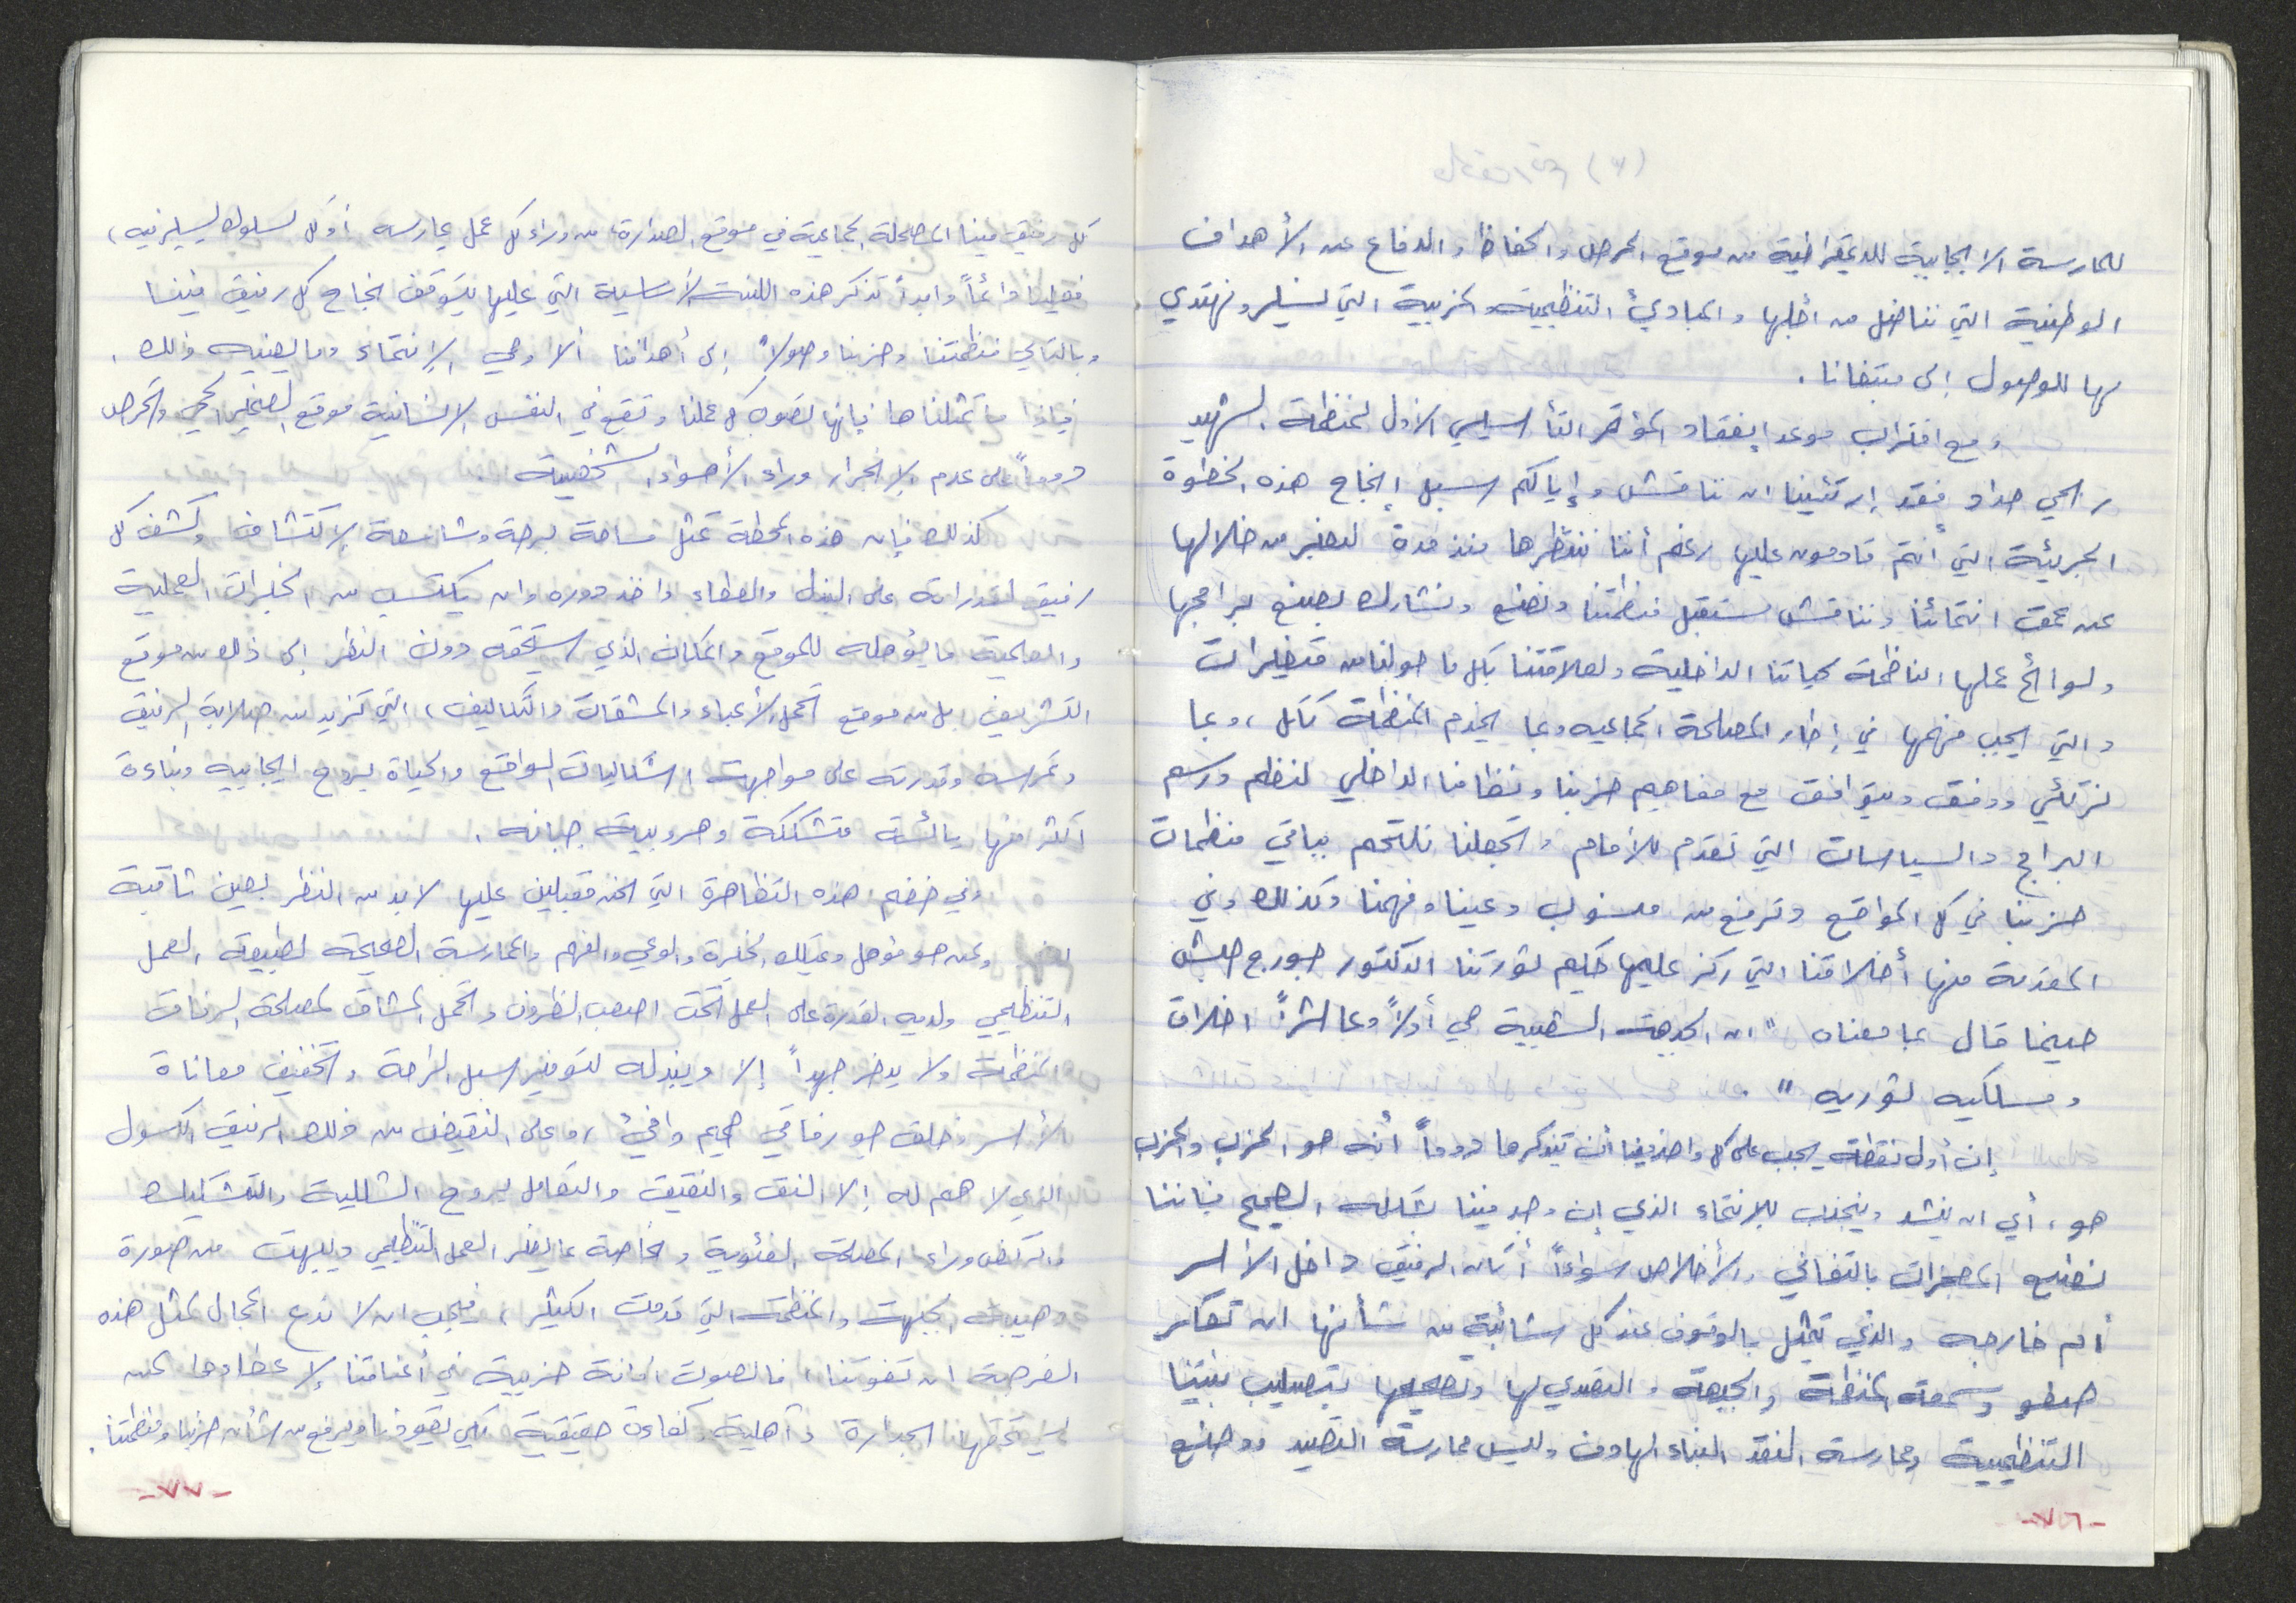 للممارسة الايجابية للديمقراطية من موقع الحرص والحفاظ والدفاع عن الأهداف
الوطنية التي نناضل من أجلها والمبادئ التنظيمية الحزبية التي نسير ونهتدي
بها للوصول إلى مبتغانا .
ومع اقتراب موعد إنعقاد المؤتمر التأسيسي الاول لمنظمة الشهيد
راحي حداد فقد إرتئينا ان نناقش وإياكم سبل إنجاح هذه الخطوة
الجريئة التي أنتم قادمون عليها رغم أننا ننتظرها منذ مدة لنعبر من خلالها
عن عمق انتمائنا ونناقش مستقبل منظمتنا ونضع ونشارك بصنع برامجها
ولوائح عملها الناظمة لحياتنا الداخلية ولعلاقتنا بكل ما حولنا من متغيرات
والتي يجب فهمها في إطار المصلحة الجماعيه وبما يخدم المنظمة ككل ، وبما
نرتئي ووفق ويتوافق مع مفاهيم حزبنا ونظامنا الداخلي لنظم ورسم
البرامج والسياسات التي تقدم للأمام وتجعلنا نلتحم بباقي منظمات
حزبنا في كل المواقع وترفع من منسوب وعينا وفهمنا وكذلك وفي
المقدمة منها أخلاقنا التي ركز عليها حكيم ثورتنا الدكتور جورج حبش
حينما قال بما معناه " ان الجبهة الشعبية هي أولاً وعاشراً اخلاق
ومسلكيه ثوريه " .
إن أول نقطة يجب على كل واحد فينا أن يتذكرها دوماً أنه هو الحزب والحزب
هو ، أي ان ينشد وينجذب للإنتماء الذي إن وجد فيننا بشكله الصحيح فإننا
نصنع المعجزات بالتفاني والأخلاص سواءً أكان الرفيق داخل الأسر
أم خارجه والذي يتمثل بالوقوف عند كل شائبة من شأنها ان تعكر
صفو وسمعة المنظمة والجبهة والتصدي لها وتصحيحها بتصليب بنيتنا
التنظيمية وممارسة النقد البناء الهادف وليس ممارسة التصيد ووضع
-٧٦-
كل رفيق فينا المصلحة الجماعية في موقع الصدارة من وراء كل عمل يمارسه أو كل سلوك يسلكه ،
فعلينا دائماً وابداً تذكر هذه اللبنة الأساسية التي عليها يتوقف نجاح كل رفيق فيننا
وبالتالي منظمتنا وحزبنا وصولاً إلى أهدافنا ألا وهي الإنتماء وما يعنيه ذلك .
فإذا ما تمثلناها فإنها تصوب كل عملنا وتقع في النفس الإنسانية موقع الضمير الحي والحرص
دوماً على عدم الإنجرار وراء الأهواء الشخصية .
كذلك فإن هذه المحطة تمثل مساحة لرحة وشاسعة لإكتشاف وكشف كل
رفيق لقدراته على البذل والعطاء واخذ دوره وان يكتسب من الخبرات العملية
والعلمية ما يؤهله للموقع والمكان الذي يستحقه دون النظر إلى ذلك من موقع
التشريف ، بل من موقع تحمل الأعباء والمشقات والتكاليف ، التي تزيد من صلابة الرفيق
وتمرسه وقدرته على مواجهة اشكاليات الواقع والحياة بروح ايجابيه وبناءة
اكثر منها يائسة متشككة وهروبية جبانه .
وفي خضم هذه التظاهرة التي نحن مقبلين عليها لابد من النظر بعين ثاقبة
ولمن هو مؤهل ويمتلك الخبرة والوعي والفهم والممارسة الصحيحة لطبيعة العمل
التنظيمي ولديه القدرة على العمل تحت اصعب الظروف وتحمل المشاق لمصلحة الرفاق
المنظمة ولا يدخر جهداً إلا ويبذله لتوفير سبل الراحة وتخفيف معاناة
الأسر وخلق جو رفاقي حميم دافئ ، وعلى النقيض من ذلك الرفيق الكسول
الذي لا هم له إلا النق والنقيق والتعامل بروح الشللية والتشكيك
والركض وراء المصلحة الفئوية والخاصة بما يضر العمل التنظيمي ويبهت من صورة
وهيبة الجبهة والمنظمة التي قدمت الكثير ، فيجب ان لا ندع المجال لمثل هذه
الفرصة ان تفوتنا ، فالصوت امانة حزبية في أعناقنا لإعطاءها لمن
يستحقها الجدارة وأهلية وكفاءة حقيقية لكي يقودنا ويرفع من شأن حزبنا ومنظمتنا .
-٧٧-